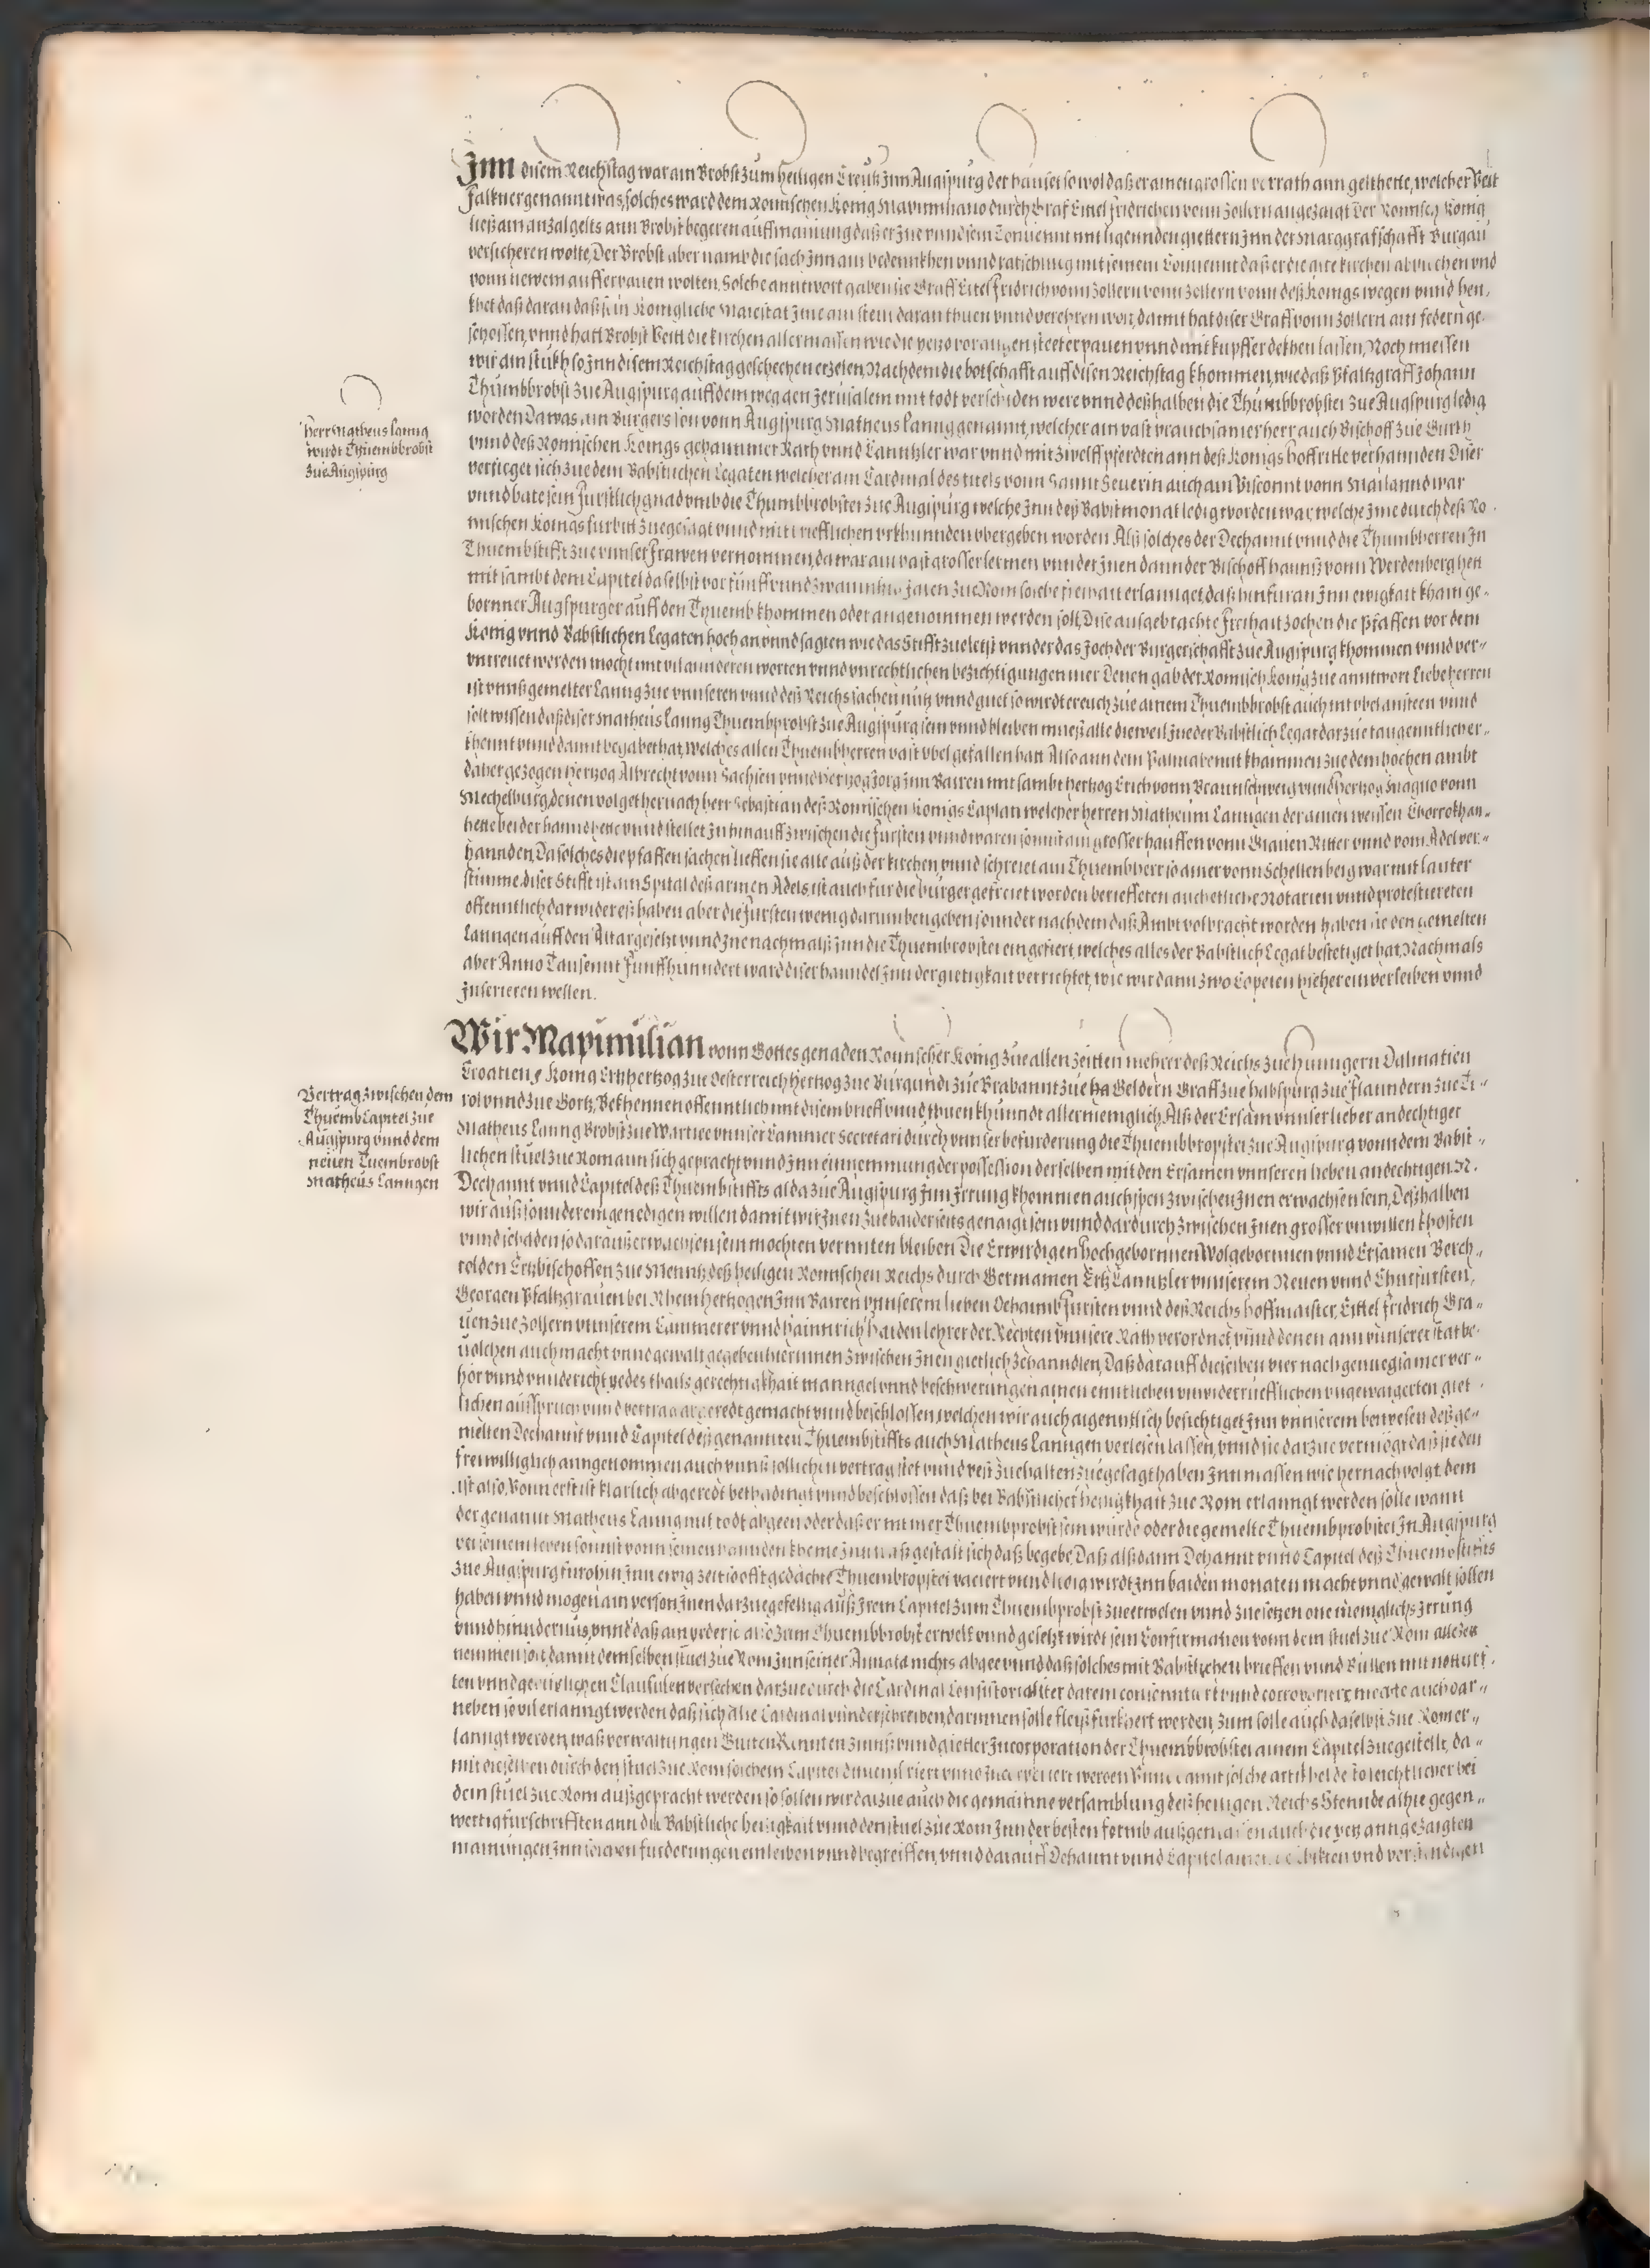 Inn disem Reichstag war ain Brobst zum heiligen Creutz Inn Augspurg der hauset so wol daß er ainen grossen vorrath ann gelt hette, welcher Veit
Falkner genannt was, solches ward dem Romischen Konig Maximiliano durch Graf Eitel Fridrichen vonn Zollern angezaigt Der Romisch Konig
ließ ain anzal gelts ann Brobst begeren auff mainung daß er Ine vnnd sein Conuennt mit ligennden giettern Inn der Marggrafschafft Burgau
versicheren wolte, Der Brobst aber namb die sach Inn ain bedennkhen vnnd ratschlug mit seinem Conuennt daß er die alte kirchen abbrechen vnd
vonn newem aufferbauen wolten, Solche anntwort gaben sie Graff Eitel Fridrich vonn Zollern vonn Zollern vonn deß Konigs wegen vnnd hen,
khet daß daran daß sein Konigliche Maiestat Ime ain stein daran thuen vnnd verehren wol, damit hat diser Graff vonn Zollern ain federn ge,
schossen, vnnd hatt Brobst Veitt die kirchen allermassen wie die yezo vor augen steet erpauen vnnd mit kupffer dekhen lassen, Noch miessen
wir ain stukh so Inn disem Reichstag geschechen erzelen, Nachdem die botschafft auff disen Reichstag khommen, wie daß Pfaltzgraff Johann
Thumbbrobst zue Augspurg auff dem weg gen Jerusalem mit todt verschiden were vnnd deßhalben die Thumbbrobstei zue Augspurg ledig
worden Da was ain Burgers son vonn Augspurg Matheus Lanng genannt, welcher ain vast brauchsamer herr auch Bischoff zue Gurkh
vnnd deß Romischen Konigs gehaimmer Rath vnnd Canntzler war vnnd mit zwelff pferdten ann deß Konigs hoff ritte verhannden Diser
verfieget sich zue dem Babstlichen Legaten welcher ain Cardinal des titels vonn Sannt Seuerin auch ain Visconnt vonn Mailannd war
vnnd bate sein Furstlich gnad vmb die Thumbbrobstei zue Augspurg welche Inn deß Babst monat ledig worden war, welche Ime durch deß Ro,
mischen Konigs furbitt zuegesagt vnnd mit brieflichen vrkhunnden vbergeben worden Alß solches der Dechannt vnnd die Thumbherren In
Thuembstifft zue vnnser Frawen vernommen, da war ain vast grosser lermen vnnder Inen dann der Bischoff hannß vonn Werdenberg hett
mit sambt dem Capitel daselbst vor funff vnnd zwainntzig Jaren zue Rom solche freihait erlannget, daß hinfuran Inn ewigkait khain ge,
bornner Augspurger auff den Thuemb khommen oder angenommen werden soll, Dise ausgebrachte Freihait zochen die Pfaffen vor dem
Konig vnnd Babstlichen Legaten hoch an vnnd sagten wie das Stifft zueletst vnnder das Joch der Burgerschafft zue Augspurg khommen vnnd ver,,
vntreuet werden mocht mit vil annderen worten vnnd vnrechtlichen bezichtigungen mer Denen gab der Romisch Konig zue anntwort Liebe herren
ist vnnß gemelter Lanng zue vnnseren vnnd deß Reichs sachen nutz vnnd guet so wirdt er euch zue ainem Thuembbrobst auch nit vbel ansteen vnnd
solt wissen daß diser Matheus Lanng Thuembprobst zue Augspurg sein vnnd bleiben mueß alle dieweil Ine der Babstlich Legat darzue taugenntlich er,,
khennt vnnd damit begabet hat, welches allen Thuembherren vast vbel gefallen hatt Also ann dem Palmabennt khammen zue dem hochen ambt
daher gezogen Hertzog Albrecht vonn Sachsen vnnd Hertzog Jorg Inn Bairen mit sambt hertzog Erich vonn Braunschweig vnnd hertzog Magno vonn
Mechelburg, denen volget hernach herr Sebastian deß Romischen Konigs Caplan welcher herren Matheum Lanngen der ainen weissen Chorrokh an,,
hette bei der hannd fiert vnnd stellet In hinauff zwischen die Fursten vnnd waren sonnst ain grosser hauffen vonn Grauen Ritter vnnd vom Adel ver,,
hannden, Da solches die pfaffen sachen lieffen sie alle auß der kirchen, vnnd schreiet ain Thuembherr so ainer vonn Schellenberg war mit lauter
stimme, diser Stifft ist ain Spital deß armen Adels, ist auch fur die burger gefreiet worden berieffeten auch etliche Notarien vnnd protestiereten
offenntlich darwider, eß haben aber die Fursten wenig darumben geben sonnder nachdem daß Ambt volbracht worden haben sie den gemelten
Lanngen auff den Altar gesetzt vnnd Ine nachmalß Inn die Thuembbrobstei eingefiert, welches alles der Babstlich Legat bestetiget hat, Nachmals
aber Anno Tausennt Funffhunndert ward diser hanndel Inn der guetigkait verrichtet, wie wir dann zwo Copeien hieher einverleiben vnnd
Inserieren wellen.
herr Matheus Lanng
wirdt Thuembbrobst
zue Augspurg
Wir Maximilian vonn Gottes genaden Romischer Konig zue allen zeitten mehrer deß Reichs zue Hunngern Dalmatien
Croatien, Konig Ertzhertzog zue Oesterreich Hertzog zue Burgundi zue Brabannt zue ha Geldern Graff zue habspurg zue Flanndern zue Ti,,
rol vnnd zue Gortz, Bekhennen offenntlich mit disem brieff vnnd thuen khunndt allermeniglich, Alß der Ersam vnnser lieber andechtiger
Matheus Lanng Brobst zue Wartsee vnnser Cammer Secretari durch vnnser befurderung die Thuembbropstei zue Augspurg vonn dem Babst,,
lichen stuel zue Rom ann sich gepracht vnnd Inn einnemmung der possession derselben mit den Ersamen vnnseren lieben andechtigen N.
Dechannt vnnd Capitel deß Thuembstiffts alda zue Augspurg Inn Irrung khommen auch spen zwischen Inen erwachsen sein, Deßhalben
wir auß sonnderem genedigen willen damit wir Inen zue baiderseits genaigt sein vnnd dardurch zwischen Inen grosser vnwillen khosten
vnnd schaden so darauß erwachsen sein mochten vermiten bleiben Die Erwirdigen Hochgebornnen Wolgebornnen vnnd Ersamen Berch,,
tolden Ertzbischoffen zue Menntz deß heiligen Romischen Reichs durch Germanien Ertz Canntzler vnnserem Neuen vnnd Churfursten,
Georgen Pfaltzgrauen bei Rhein Hertzogen Inn Bairen vnnserem lieben Oehaimb Fursten vnnd deß Reichs hoffmaister, Eittel Fridrich Gra,,
uen zue Zollern vnnserem Cammerer vnnd hainnrich haiden lehrer der Rechten vnnsere Rath verordnet vnnd denen ann vnnserer stat be,
uolchen auch macht vnnd gewalt gegeben hierinnen zwischen Inen gietlich ze hanndlen, Daß darauff dieselben vier nach genuegsamer ver,,
hör vnnd vnndericht yedes thails gerechtigkhait manngel vnnd beschwerungen ainen enntlichen vnwiderrueflichen vngewaigerten giet,
lichen außspruch vnnd vertrag abgeredt gemacht vnnd beschlossen, welchen wir auch aigenntlich besichtiget Inn vnnserem beywesen deß ge,,
melten Dechannt vnnd Capitel deß genannten Thuembstiffts auch Matheus Lanngen verlesen lassen, vnnd sie darzue vermögt daß sie den
freiwilliglich anngenommen auch vnnß sollichen vertrag stet vnnd vest zue halten zuegesagt haben Innmassen wie hernach volgt, dem
ist also, Vonn erst ist klarlich abgeredt bethadingt vnnd beschlossen daß bei Babstlicher heiligkhait zue Rom erlanngt werden solle wann
der genannt Matheus Lanng mit todt abgeen oder daß er nit mer Thuembprobst sein wurde oder die gemelte Thuembprobstei In Augspurg
bei seinem leben sonnst vonn seinen hannden kheme Inn waß gestalt sich daß begebe, Daß alßdann Dechannt vnnd Capitel deß Thuembstiffts
zue Augspurg furohin Inn ewig zeit so offt gedachte Thuembropstei vaciert vnnd ledig wirdt Inn baiden monaten macht vnnd gewalt sollen
haben vnnd mogen ain person Inen darzue gefellig auß Irem Capitel zum Thuembprobst zue erwelen vnnd zue setzen one meniglichs Irrung
vnnd hinndernus, vnnd daß ain yeder so also zum Thuembbrobst erwelt vnnd gesetzt wirdt sein Confirmation vonn dem stuel zue Rom allezeit
nemmen soll damit demselben stuel zue Rom Inn seiner Annata nichts abgee vnnd daß solches mit Babstlichen brieffen vnnd Bullen mit notturf,
ten vnnd gewonlichen Clausulen versehen darzue durch die Cardinal Consistorialiter darein consentiert vnnd corroboriert werde auch dar,,
neben so vil erlanngt werden daß sich alle Cardinal vnnderschreiben, darinnen solle fleiß furkhert werden, zum solle auch daselbst zue Rom er,,
lanngt werden, waß verwaltungen Guiten Rennten zinnß vnnd gietter Incorporation der Thuembbrobstei ainem Capitel zuegestellt, da,,
mit dieselben durch den stuel zue Rom solchem Capitel werden Vnnd damit solche artikhel deßto leichtlicher bei
dem stuel zue Rom außgepracht werden so sollen wir darzue auch die gemainne versamblung deß heiligen Reichs Stennde alhie gegen,,
wertig furschrifften ann die Babstliche heiligkait vnnd den stuel zue Rom Inn der besten formb außgeen lassen auch die yetz anngezaigten
mainungen Inn solchen furderungen einleiben vnnd begreiffen, vnnd darauff Dechannt vnnd Capitel ainen schikten vnd verstendigen
Vertrag zwischen dem
Thuemb Capitel zue
Augspurg vnnd dem
neuen Tuembrobst
Matheus Lanngen